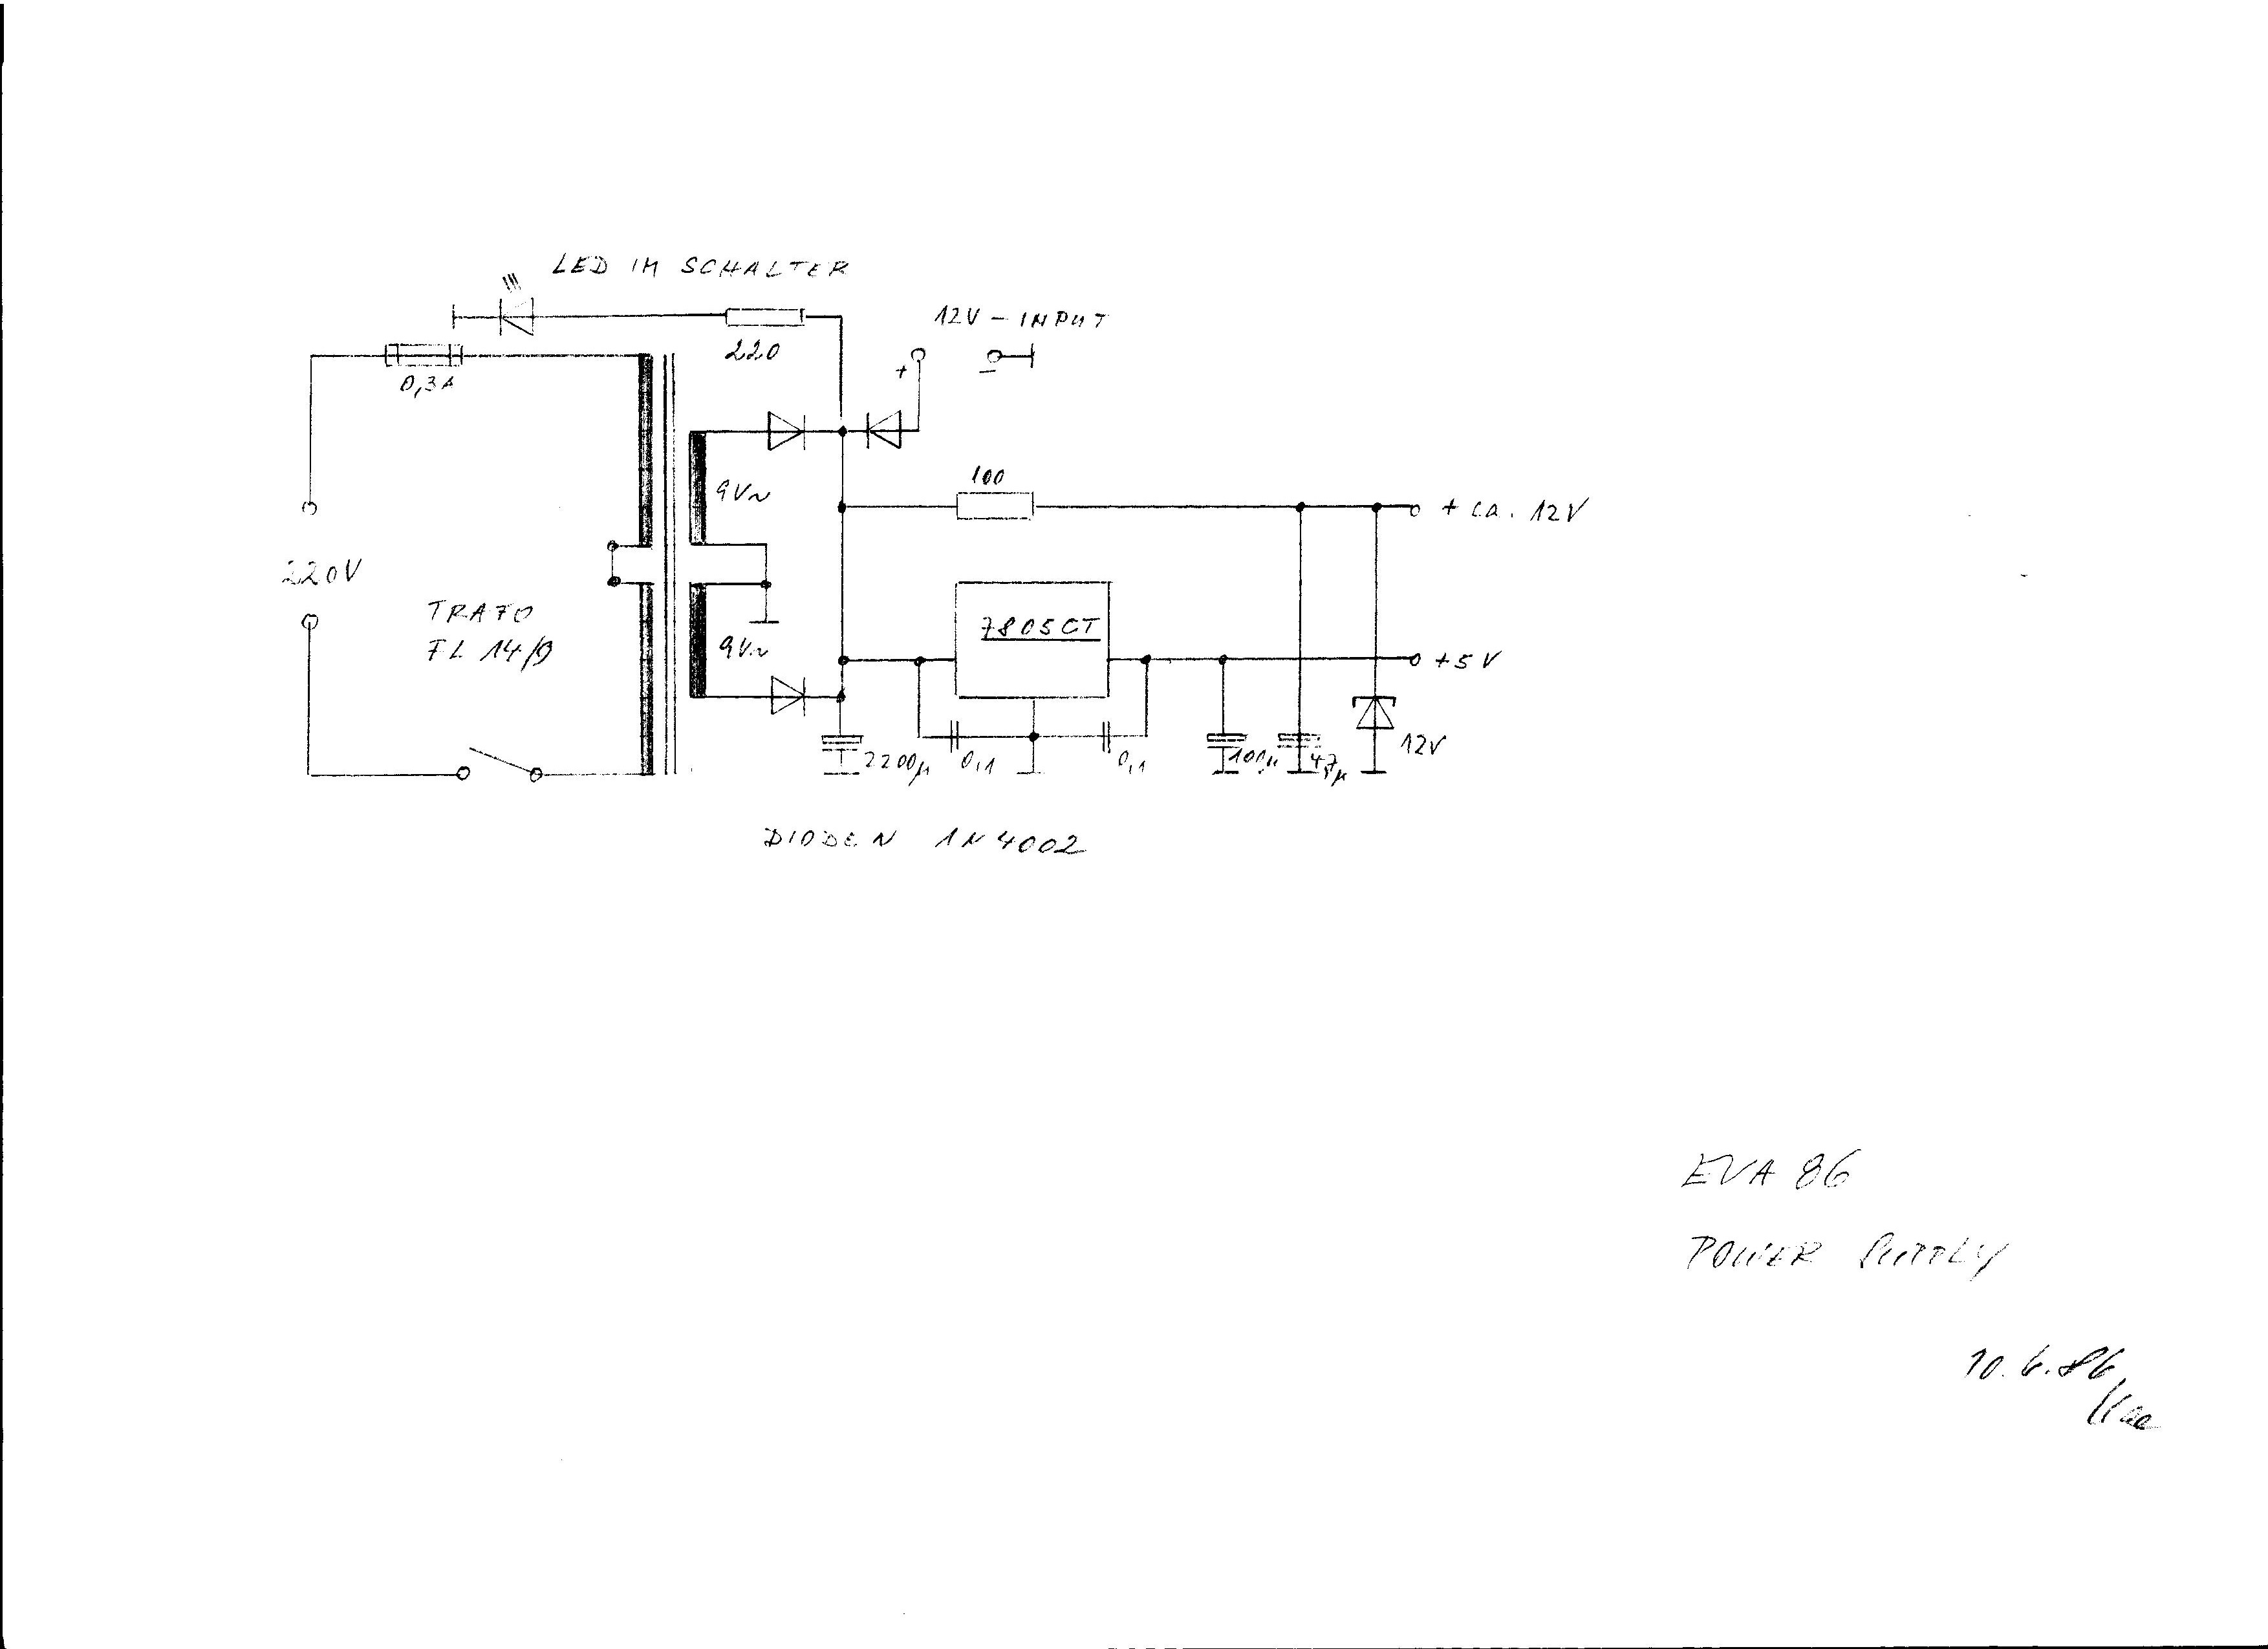 LED IM SCHALTER
220
12V - INPUT
+
-
0,3A
9V~
100
+ ca. 12V
220V
TRAFO
FL 14/9
7805CT
9V~
+5V
2200µ
0,1
0,1
100µ
4,7µ
12V
DIODEN 1N4002
EVA 86
POWER SUPPLY
10.6.86